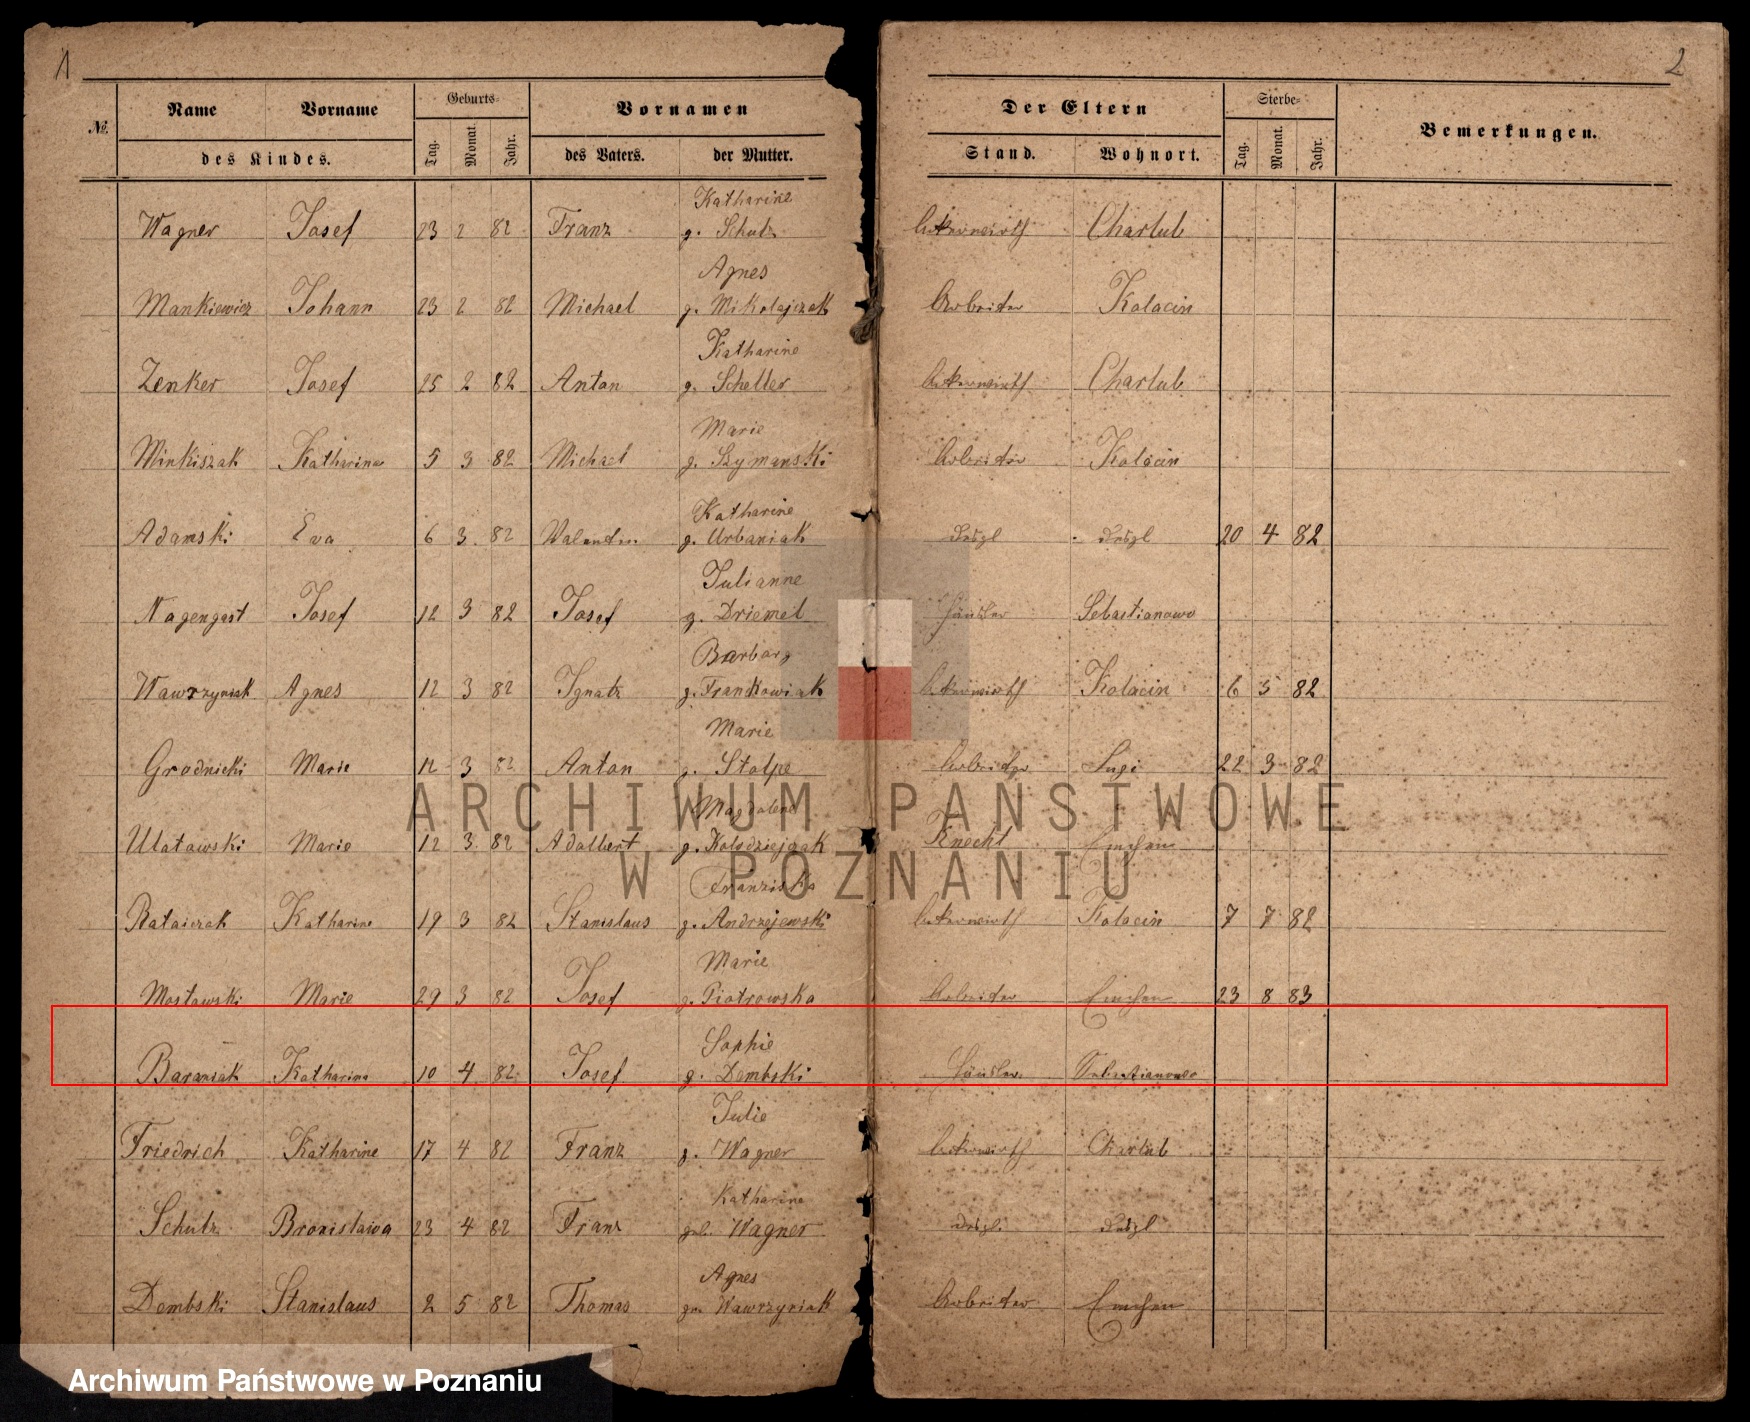 1
2
Name Vorname Geburts- Vornamen Der Eltern Sterbe- Bemerkungen.
№. des Kindes. Tag. Monat. Jahr. des Vaters. der Mutter. Stand. Wohnort. Tag. Monat. Jahr.
Katharine
Wagner Josef 23 2 82 Franz g. Schulz Ackerwirth Charlub
Agnes
Mankiewicz Johann 23 2 82 Michael g. Mikolajczak Arbeiter Kolacin
Katharine
Zenker Josef 25 2 82 Anton g. Scheller Ackerwirth Charlub
Marie
Minkiszak Katharina 5 3 82 Michael g. Szymanski Arbeiter Kolacin
Katharine
Adamski Eva 6 3 82 Valentin g. Urbaniak desgl desgl 20 4 82
Julianne
Nagengast Josef 12 3 82 Josef g. Driemel Häusler Sebastianowo
Barbara
Wawrzyniak Agnes 12 3 82 Ignatz g. Frankowiak Ackerwirth Kolacin 6 5 82
Marie
Grodnicki Marie 12 3 82 Anton g. Stolpe Arbeiter Lugi 22 3 82
Magdalene
Ulatowski Marie 12 3 82 Adalbert g. Kolodziejczak Knecht Emchen
Franziska
Ratajczak Katharine 19 3 82 Stanislaus g. Andrzejewski Ackerwirth Kolacin 7 7 82
Marie
Mostowski Marie 29 3 82 Josef g. Piotrowska Arbeiter Emchen 23 8 83
Sophie
Baraniak Katharina 10 4 82 Josef g. Dembski Häusler Sebastianowo
Julie
Friedrich Katharine 17 4 82 Franz g. Wagner Ackerwirth Charlub
Katharine
Schulz Bronislawa 23 4 82 Franz geb. Wagner desgl. desgl
Agnes
Dembski Stanislaus 2 5 82 Thomas ge. Wawrzyniak Arbeiter Emchen
ARCHIWUM PAŃSTWOWE
W POZNANIU
Archiwum Państwowe w Poznaniu